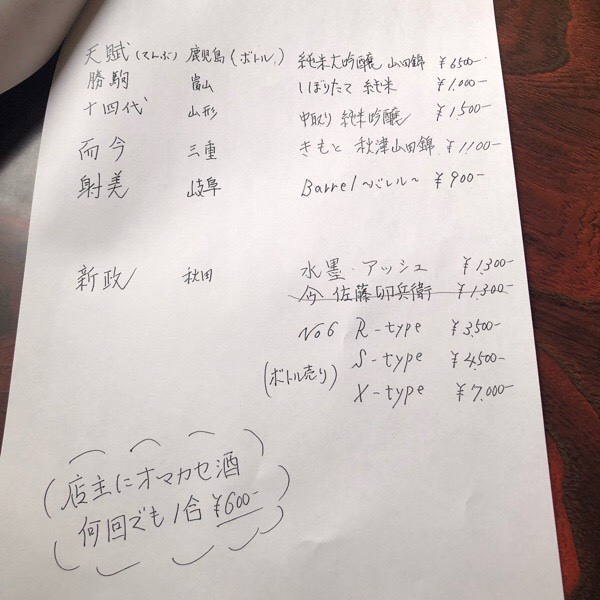 天賦(てんぶ) 鹿児島 (ボトル) 純米大吟醸 山田錦 ¥6500-
勝駒 富山 しぼりたて 純米 ¥1,000-
十四代 山形 中取り 純米吟醸 ¥1,500-
而今 三重 きもと 秋津山田錦 ¥1,100-
射美 岐阜 Barrel ~バレル~ ¥900-
新政 秋田 水墨・アッシュ ¥1,300-
佐藤卯兵衛 ¥1,300-
No6 R-type ¥3,500-
(ボトル売り) S-type ¥4,500-
X-type ¥7,000-
店主にオマカセ酒
何回でも1合 ¥600-